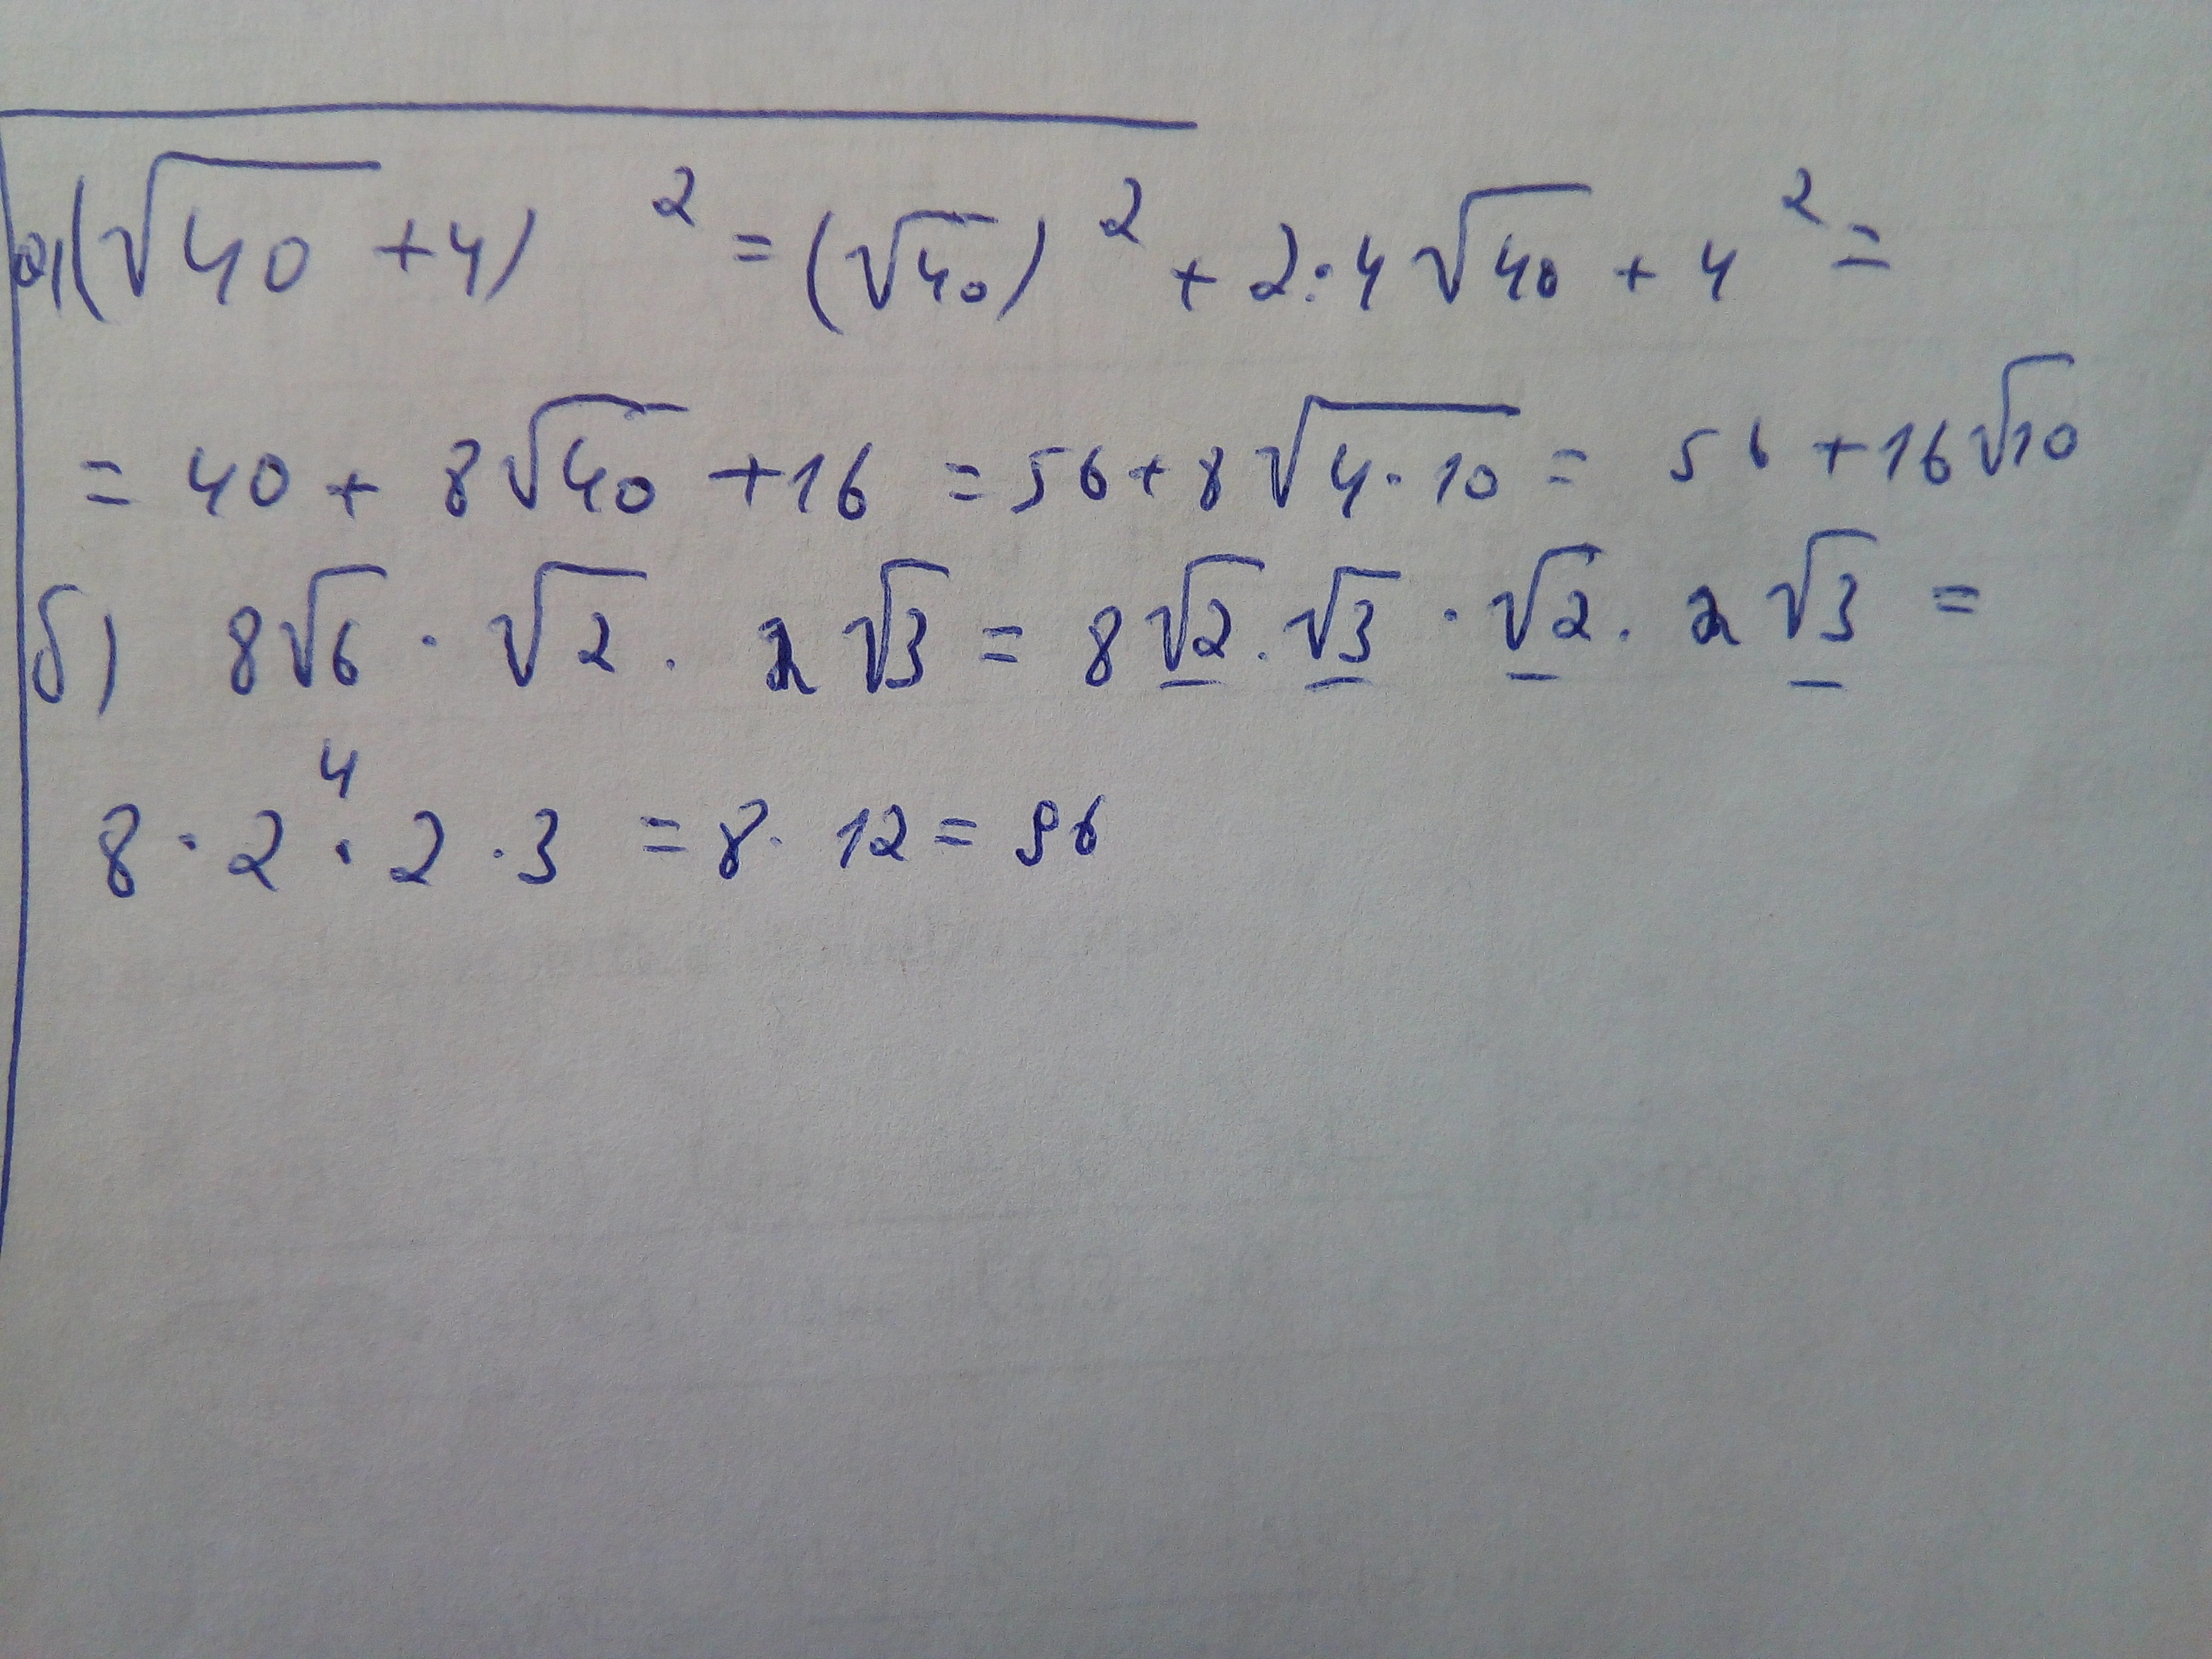 а) (√40 + 4)² = (√40)² + 2·4√40 + 4² =
= 40 + 8√40 + 16 = 56 + 8√4·10 = 56 + 16√10
б) 8√6 · √2 · 2√3 = 8√2 · √3 · √2 · 2√3 =
4
8 · 2 · 2 · 3 = 8 · 12 = 96